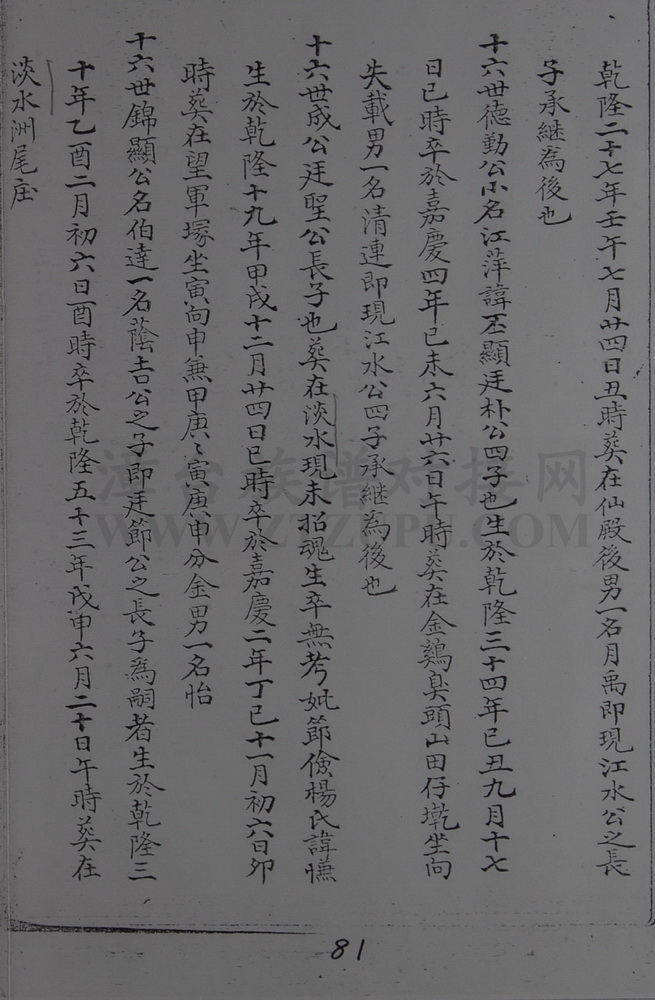 乾隆二十七年壬午七月廿四日丑時葬在仙殿後男一名月禹即現江水公之長
子承継為後也
十六世德動公小名江萍諱丕顯廷朴公四子也生於乾隆三十四年已丑九月十七
日已時卒於嘉慶四年已未六月廿六日午時葬在金鷄奥頭山田仔墘坐向
失載男一名清連即現江水公四子承継為後也
十六世成公廷聖公長子也葬在淡水現未招魂生卒無考妣節儉楊氏諱
生於乾隆十九年甲戌十二月廿四日巳時卒於嘉慶二年丁巳十一月初六日卯
時葬在望軍塚坐寅向申兼甲庚〻寅庚申分金男一名怡
十六世錦顯公名伯達一名蔭吉公之子即廷節公之長子為嗣者生於乾隆三
十年乙酉二月初六日酉時卒於乾隆五十三年戊申六月二十日午時葬在
淡水洲尾庄
81
漳台族谱对接网
WWW.ZTZUPU.COM